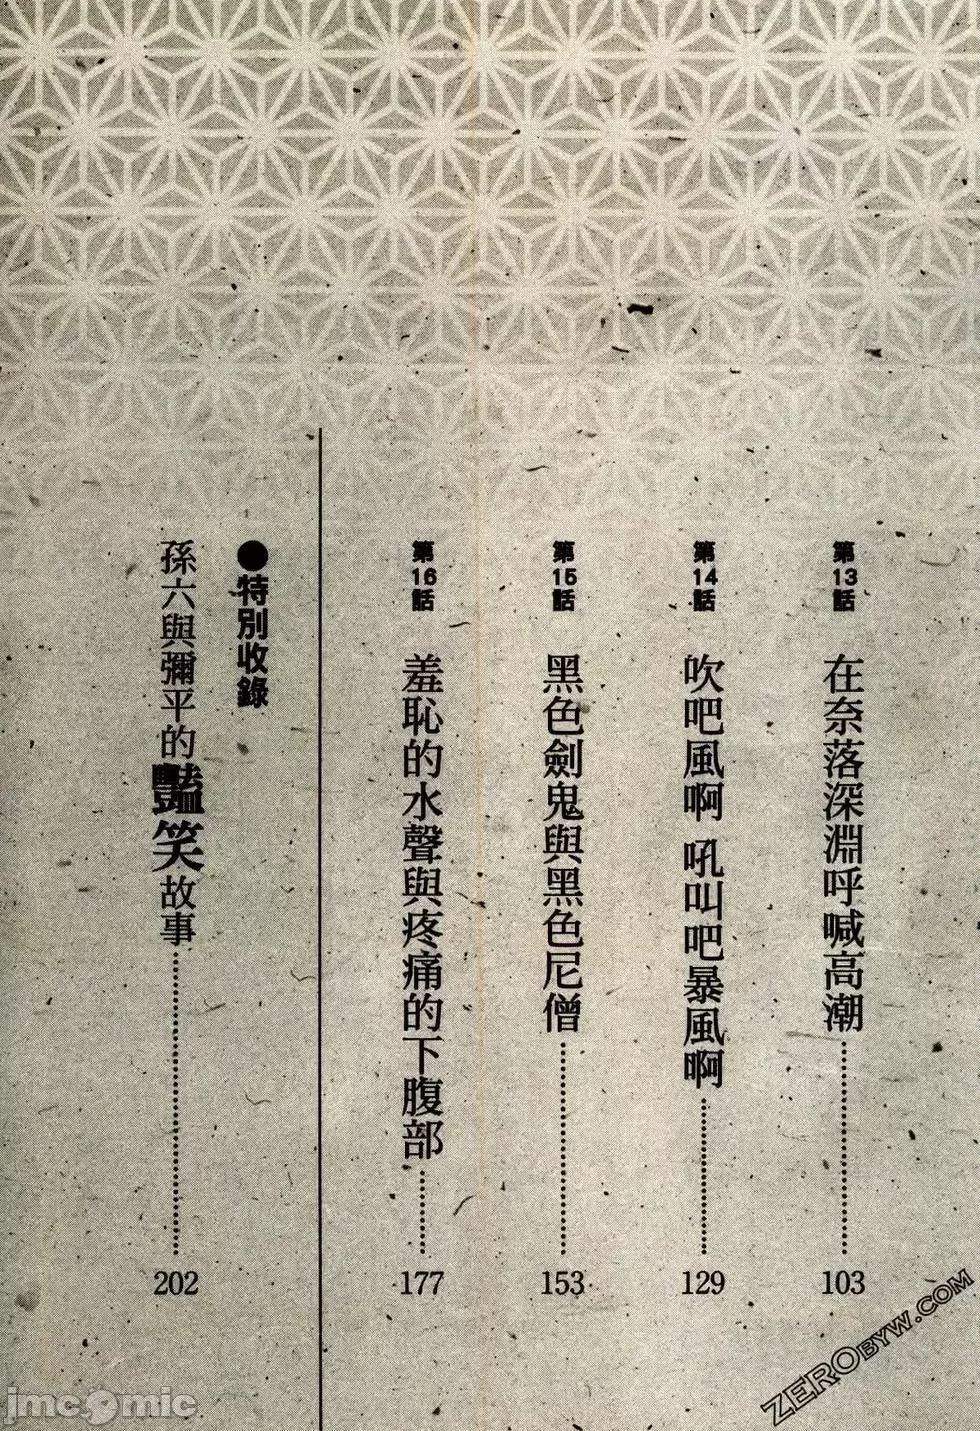 第13話 在奈落深淵呼喊高潮 103
第14話 吹吧風啊 吼叫吧暴風啊 129
第15話 黑色劍鬼與黑色尼僧 153
第16話 羞恥的水聲與疼痛的下腹部 177
●特別收錄
孫六與彌平的豔笑故事 202
ZEROBYW.COM
jmcomic